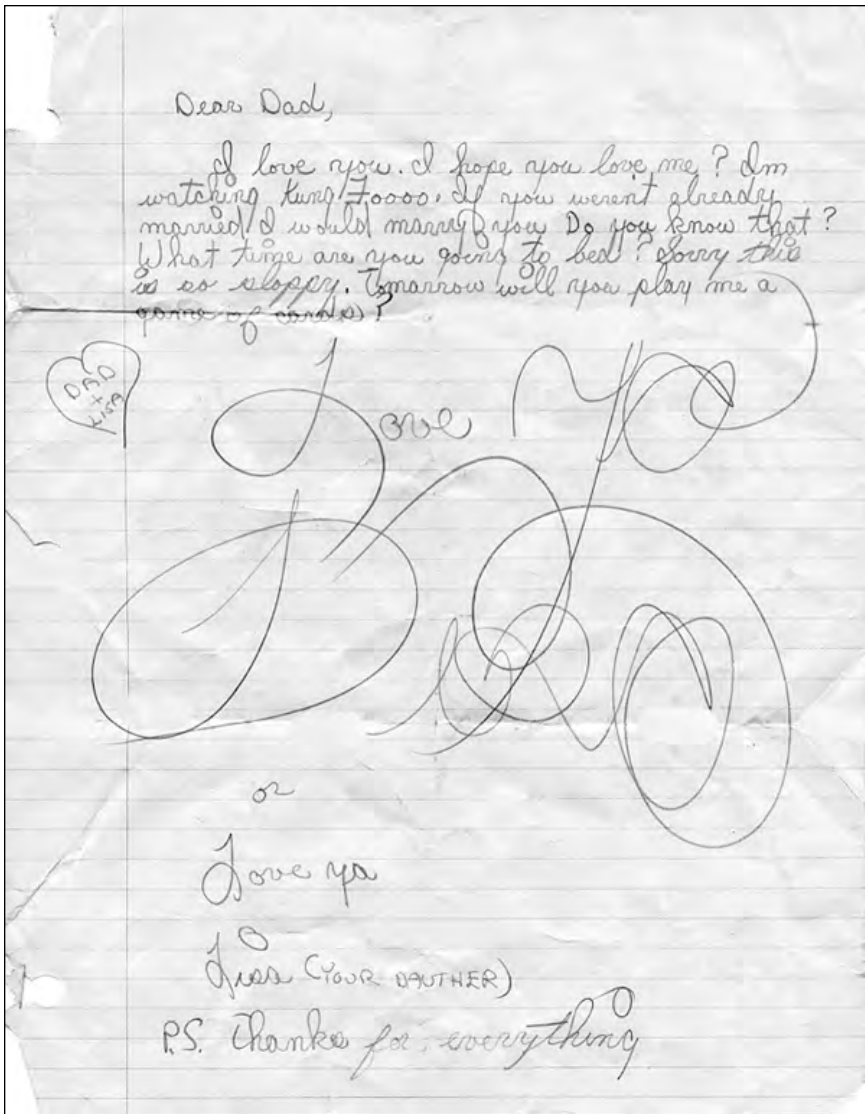 Dear Dad,
I love you. I hope you love me? Im
watching Kung Foooo. If you werent already
married I would marry you Do you know that?
What time are you going to bed? Sorry this
is so sloppy. Tomarrow will you play me a
game of cards?
DAD
+
LISA
Love Ya
Lisa
or
Love ya
Lisa (YOUR DAUTHER)
P.S. Thanks for everything